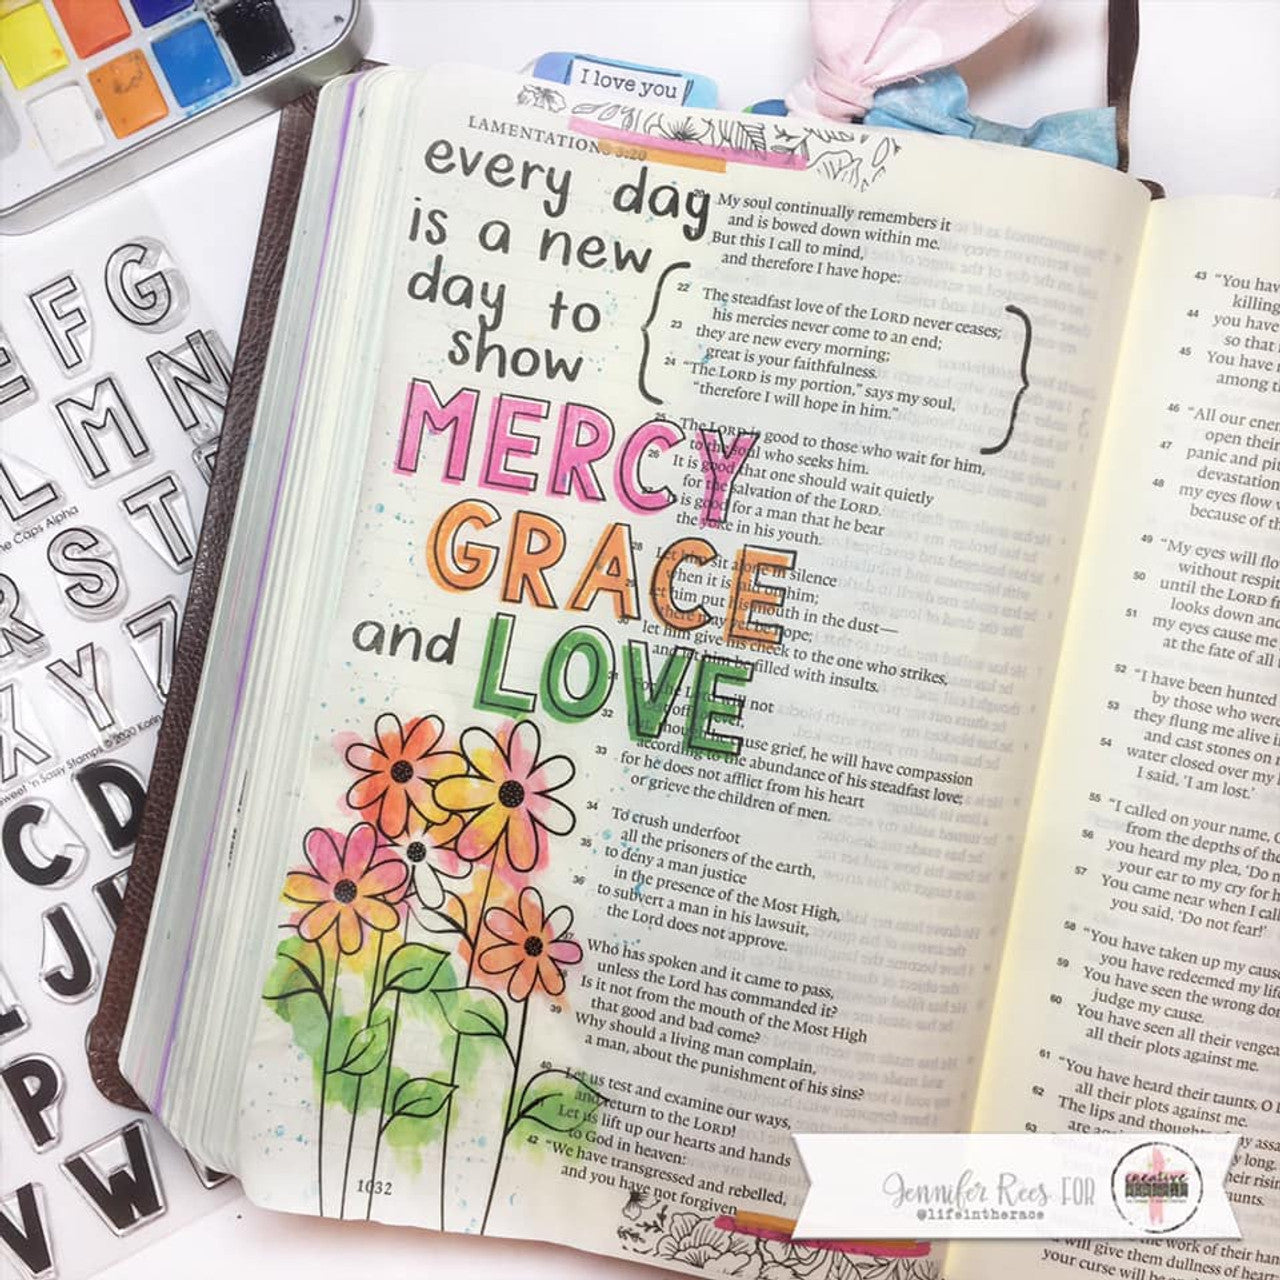 I love you
LAMENTATIONS 3:20
every day
is a new
day to
show
MERCY
GRACE
and LOVE
My soul continually remembers it
and is bowed down within me.
But this I call to mind,
and therefore I have hope:
22 The steadfast love of the LORD never ceases;
his mercies never come to an end;
23 they are new every morning;
great is your faithfulness.
24 "The LORD is my portion," says my soul,
"therefore I will hope in him."
25 The LORD is good to those who wait for him,
to the soul who seeks him.
26 It is good that one should wait quietly
for the salvation of the LORD.
is good for a man that he bear
the yoke in his youth.
28 Let him sit alone in silence
when it is laid on him;
29 let him put his mouth in the dust—
there may yet be hope;
30 let him give his cheek to the one who strikes,
and let him be filled with insults.
31 For the Lord will not
cast off forever,
32 but, though he cause grief, he will have compassion
according to the abundance of his steadfast love;
33 for he does not afflict from his heart
or grieve the children of men.
34 To crush underfoot
all the prisoners of the earth,
35 to deny a man justice
in the presence of the Most High,
36 to subvert a man in his lawsuit,
the Lord does not approve.
37 Who has spoken and it came to pass,
unless the Lord has commanded it?
Is it not from the mouth of the Most High
that good and bad come?
39 Why should a living man complain,
a man, about the punishment of his sins?
40 Let us test and examine our ways,
and return to the LORD!
Let us lift up our hearts and hands
to God in heaven:
42 "We have transgressed and rebelled,
and you have not forgiven.
1032
43 "You hav
killing
44 you have
so that
45 You have
among t
46 "All our ener
open their
47 panic and pi
devastation
48 my eyes flow
because of th
49 "My eyes will flo
without respit
50 until the LORD f
looks down and
51 my eyes cause me
at the fate of all
52 "I have been hunted
by those who were
53 they flung me alive i
and cast stones on
54 water closed over my
I said, 'I am lost.'
55 "I called on your name,
from the depths of th
56 you heard my plea, 'Do n
your ear to my cry for h
57 You came near when I call
you said, 'Do not fear!'
58 "You have taken up my caus
you have redeemed my lif
59 You have seen the wrong don
judge my cause.
60 You have seen all their vengea
all their plots against me.
61 "You have heard their taunts, O
all their plots against me.
62 The lips and thoughts
are
63
the work of their han
will give them dullness of hear
your curse will be
F G
M N
L
Caps Alpha
S T
R
Y Z
X
Sweet 'n Sassy Stamps © 2020 Karin
C D
J
P
V W
Jennifer Rees FOR
@lifeintherace
creative